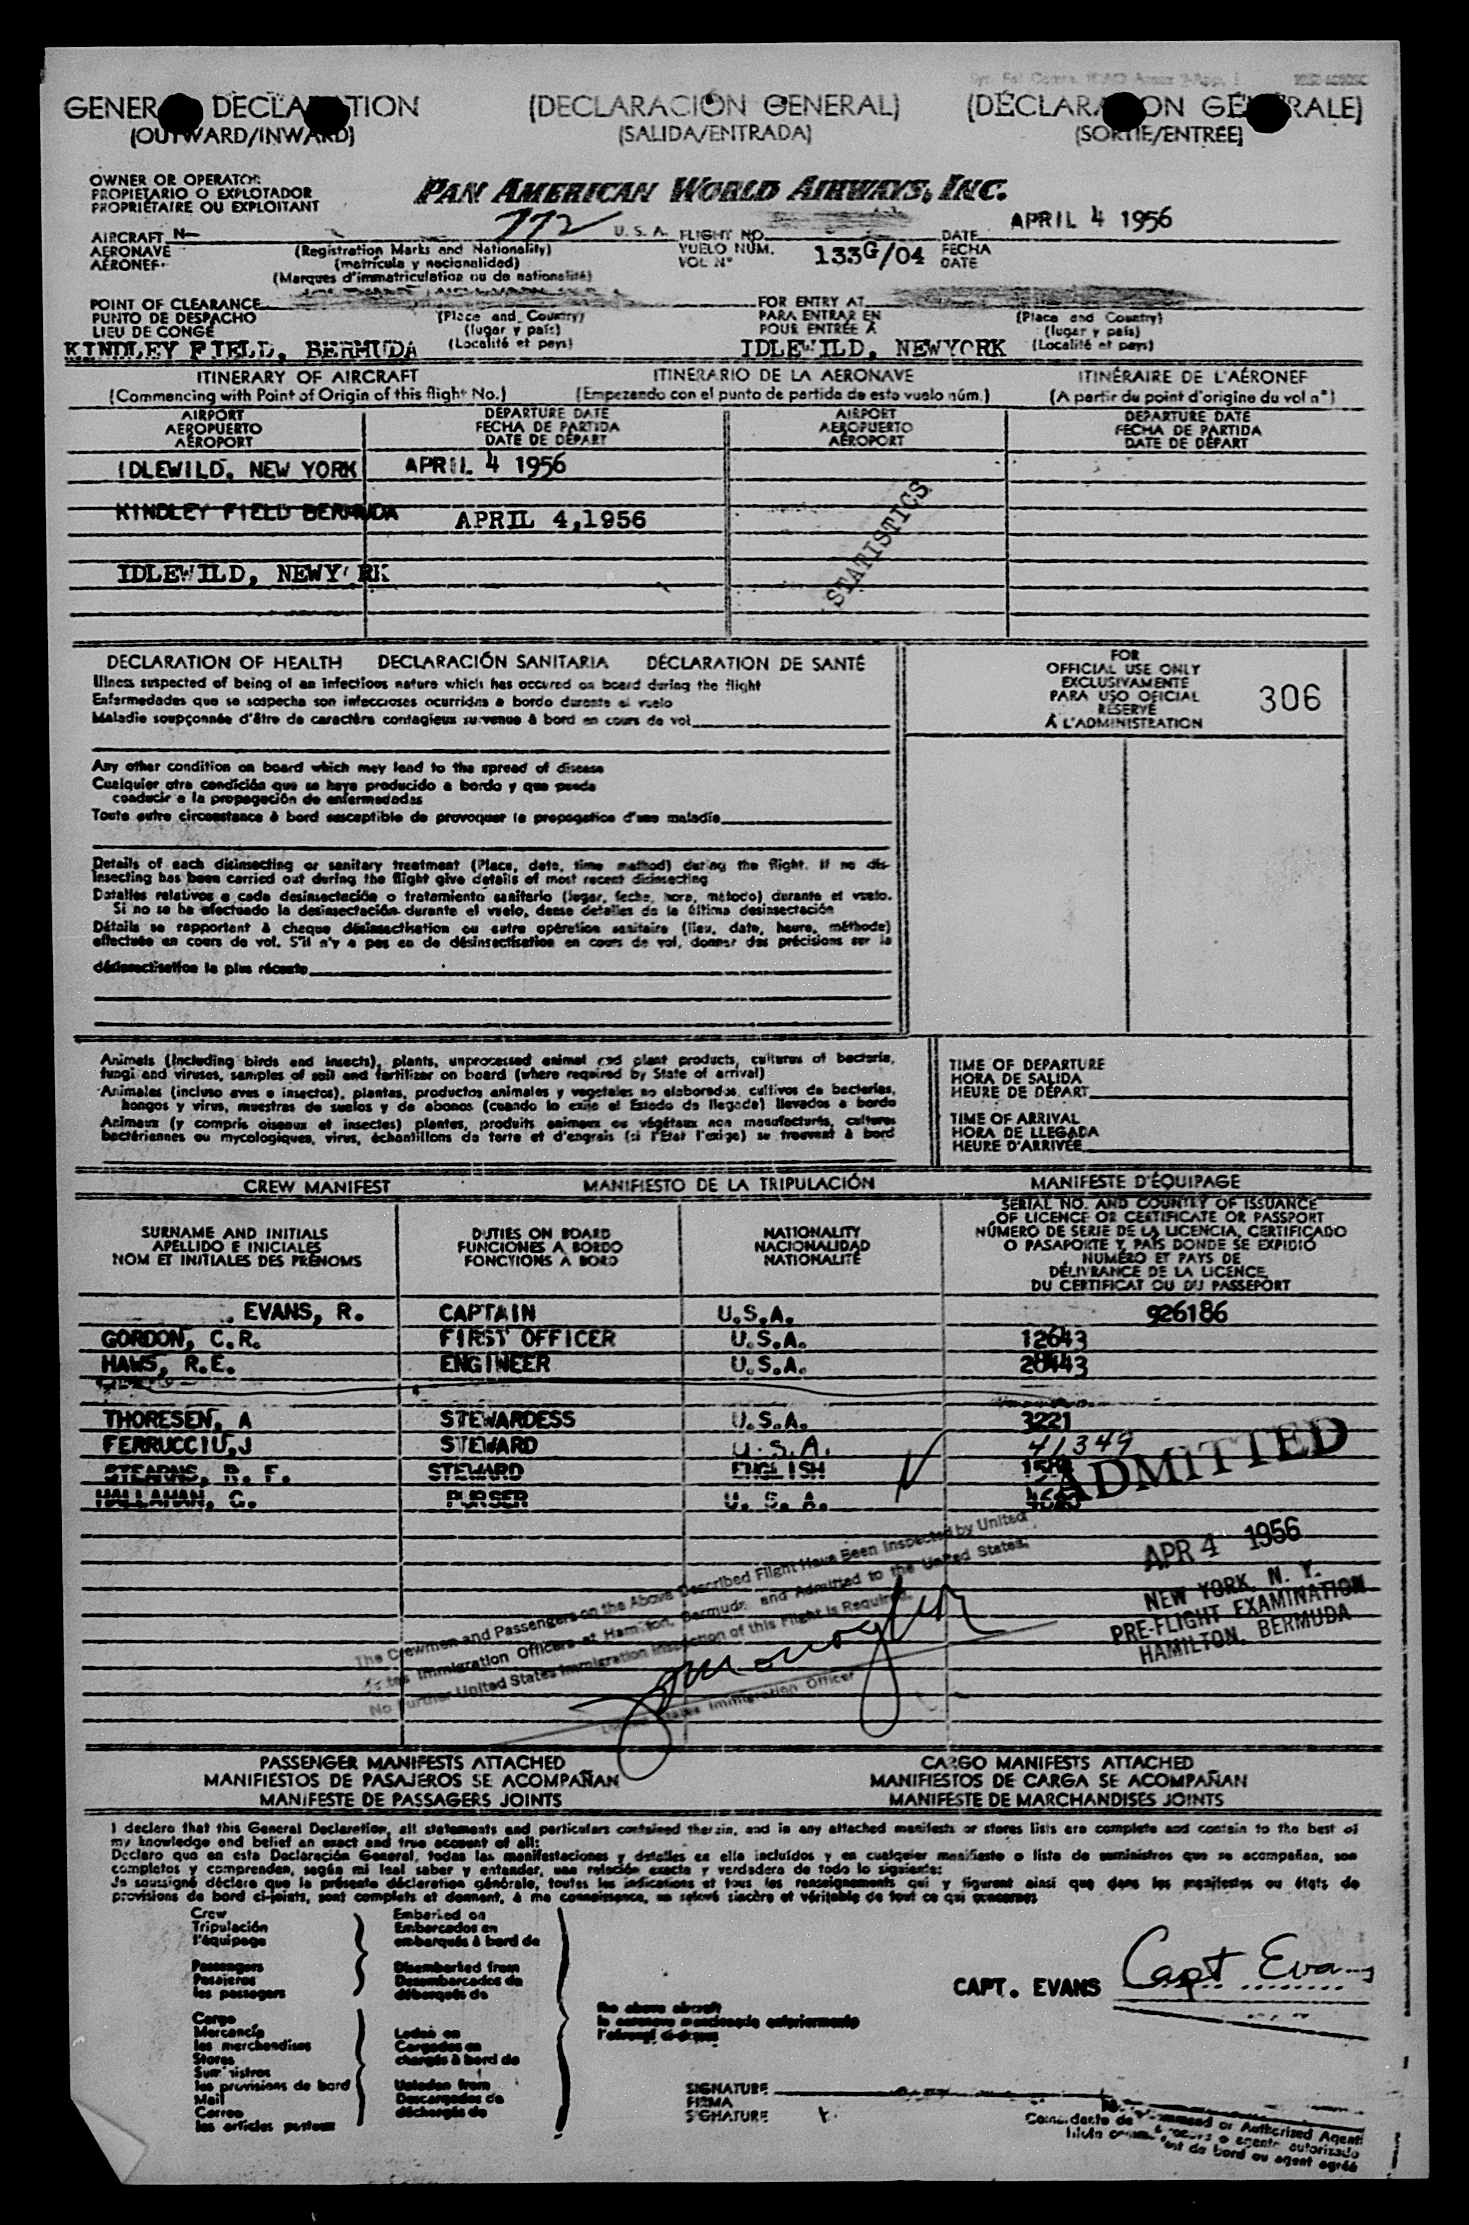 GENERAL DECLARATION (DECLARACIÓN GENERAL) (DÉCLARATION GÉNÉRALE)
(OUTWARD/INWARD) (SALIDA/ENTRADA) (SORTIE/ENTRÉE)
OWNER OR OPERATOR
PROPIETARIO O EXPLOTADOR
PROPRIÉTAIRE OU EXPLOITANT
PAN AMERICAN WORLD AIRWAYS, INC.
AIRCRAFT N— 772 U. S. A. FLIGHT NO. DATE APRIL 4 1956
AERONAVE (Registration Marks and Nationality) VUELO NÚM. 133G/04 FECHA
AÉRONEF (matrícula y nacionalidad) VOL N° DATE
(Marques d'immatriculation ou de nationalité)
POINT OF CLEARANCE FOR ENTRY AT
PUNTO DE DESPACHO (Place and Country) PARA ENTRAR EN (Place and Country)
LIEU DE CONGÉ (lugar y país) POUR ENTRÉE À (lugar y país)
KINDLEY FIELD, BERMUDA (Localité et pays) IDLEWILD, NEWYORK (Localité et pays)
ITINERARY OF AIRCRAFT ITINERARIO DE LA AERONAVE ITINÉRAIRE DE L'AÉRONEF
(Commencing with Point of Origin of this flight No.) (Empezando con el punto de partida de esto vuelo núm.) (A partir du point d'origine du vol n°)
AIRPORT DEPARTURE DATE AIRPORT DEPARTURE DATE
AEROPUERTO FECHA DE PARTIDA AEROPUERTO FECHA DE PARTIDA
AÉROPORT DATE DE DÉPART AÉROPORT DATE DE DÉPART
IDLEWILD, NEW YORK APRIL 4 1956
KINDLEY FIELD BERMUDA APRIL 4,1956
STATISTICS
IDLEWILD, NEWYORK
DECLARATION OF HEALTH DECLARACIÓN SANITARIA DÉCLARATION DE SANTÉ
Illness suspected of being of an infectious nature which has occured on board during the flight
Enfermedades que se sospecha son infecciosas ocurridas a bordo durante el vuelo
Maladie soupçonnée d'être de caractère contagieux survenue à bord en cours de vol
FOR
OFFICIAL USE ONLY
EXCLUSIVAMENTE
PARA USO OFICIAL
RÉSERVÉ
À L'ADMINISTRATION
306
Any other condition on board which may lead to the spread of disease
Cualquier otra condición que se haya producido a bordo y que pueda
conducir a la propagación de enfermedades
Toute autre circonstance à bord susceptible de provoquer la propagation d'une maladie
Details of each disinsecting or sanitary treatment (Place, date, time method) during the flight. If no dis-
insecting has been carried out during the flight give details of most recent disinsecting
Detalles relativos a cada desinsectación o tratamiento sanitario (lugar, fecha, hora, método) durante el vuelo.
Si no se ha efectuado la desinsectación durante el vuelo, dense detalles de la última desinsectación
Détails se rapportant à chaque désinsectisation ou autre opération sanitaire (lieu, date, heure, méthode)
effectuée en cours de vol. S'il n'y a pas eu de désinsectisation en cours de vol, donner des précisions sur la
désinsectisation la plus récente
Animals (including birds and insects), plants, unprocessed animal and plant products, cultures of bacteria,
fungi and viruses, samples of soil and fertilizer on board (where required by State of arrival)
Animales (incluso aves e insectos), plantas, productos animales y vegetales no elaborados, cultivos de bacterias,
hongos y virus, muestras de suelos y de abonos (cuando lo exija el Estado de llegada) llevados a bordo
Animaux (y compris oiseaux et insectes) plantes, produits animaux ou végétaux non manufacturés, cultures
bactériennes ou mycologiques, virus, échantillons de terre et d'engrais (si l'État l'exige) se trouvant à bord
TIME OF DEPARTURE
HORA DE SALIDA
HEURE DE DÉPART
TIME OF ARRIVAL
HORA DE LLEGADA
HEURE D'ARRIVÉE
CREW MANIFEST MANIFIESTO DE LA TRIPULACIÓN MANIFESTE D'ÉQUIPAGE
SURNAME AND INITIALS
APELLIDO E INICIALES
NOM ET INITIALES DES PRÉNOMS
DUTIES ON BOARD
FUNCIONES A BORDO
FONCTIONS À BORD
NATIONALITY
NACIONALIDAD
NATIONALITÉ
SERIAL NO. AND COUNTRY OF ISSUANCE
OF LICENCE OR CERTIFICATE OR PASSPORT
NÚMERO DE SERIE DE LA LICENCIA, CERTIFICADO
O PASAPORTE Y PAÍS DONDE SE EXPIDIÓ
NUMÉRO ET PAYS DE
DÉLIVRANCE DE LA LICENCE
DU CERTIFICAT OU DU PASSEPORT
EVANS, R. CAPTAIN U.S.A. 926186
GORDON, C.R. FIRST OFFICER U.S.A. 12643
HAWS, R.E. ENGINEER U.S.A.
THORESEN, A STEWARDESS U.S.A. 3221
FERRUCCIU,J STEWARD U.S.A. 41349
STEARNS, R. F. STEWARD ENGLISH
HALLAHAN, G. PURSER U. S. A.
ADMITTED
APR 4 1956
NEW YORK, N. Y.
PRE-FLIGHT EXAMINATION
HAMILTON, BERMUDA
The Crewmen and Passengers on the Above Described Flight Have Been Inspected by United
States Immigration Officers at Hamilton, Bermuda, and Admitted to the United States.
No Further United States Immigration Inspection of this Flight is Required.
United States Immigration Officer
PASSENGER MANIFESTS ATTACHED CARGO MANIFESTS ATTACHED
MANIFIESTOS DE PASAJEROS SE ACOMPAÑAN MANIFIESTOS DE CARGA SE ACOMPAÑAN
MANIFESTE DE PASSAGERS JOINTS MANIFESTE DE MARCHANDISES JOINTS
I declare that this General Declaration, all statements and particulars contained therein, and in any attached manifests or stores lists are complete and contain to the best of
my knowledge and belief an exact and true account of all:
Declaro que en esta Declaración General, todas las manifestaciones y detalles en ella incluídos y en cualquier manifiesto o lista de suministros que se acompañan, son
completos y comprenden, según mi leal saber y entender, una relación exacta y verdadera de todo lo siguiente:
Je soussigné déclare que la présente déclaration générale, toutes les indications et tous les renseignements qui y figurent ainsi que dans les manifestes ou états de
provisions de bord ci-joints, sont complets et donnent, à ma connaissance, un relevé sincère et véritable de tout ce qui concerne:
Crew Embarked on
Tripulación Embarcados en
l'équipage embarqués à bord de
Passengers Disembarked from
Pasajeros Desembarcados de
les passagers débarqués de
CAPT. EVANS Capt Evans
the above aircraft
la aeronave mencionada anteriormente
l'aéronef ci-dessus
Cargo
Mercancía Laden on
les merchandises Cargados en
Stores chargés à bord de
Suministros
les provisions de bord Unladen from
Mail Descargados de
Correo déchargés de
les articles postaux
SIGNATURE
FIRMA
SIGNATURE
Command or Authorized Agent
o agente autorizado
de bord ou agent agréé